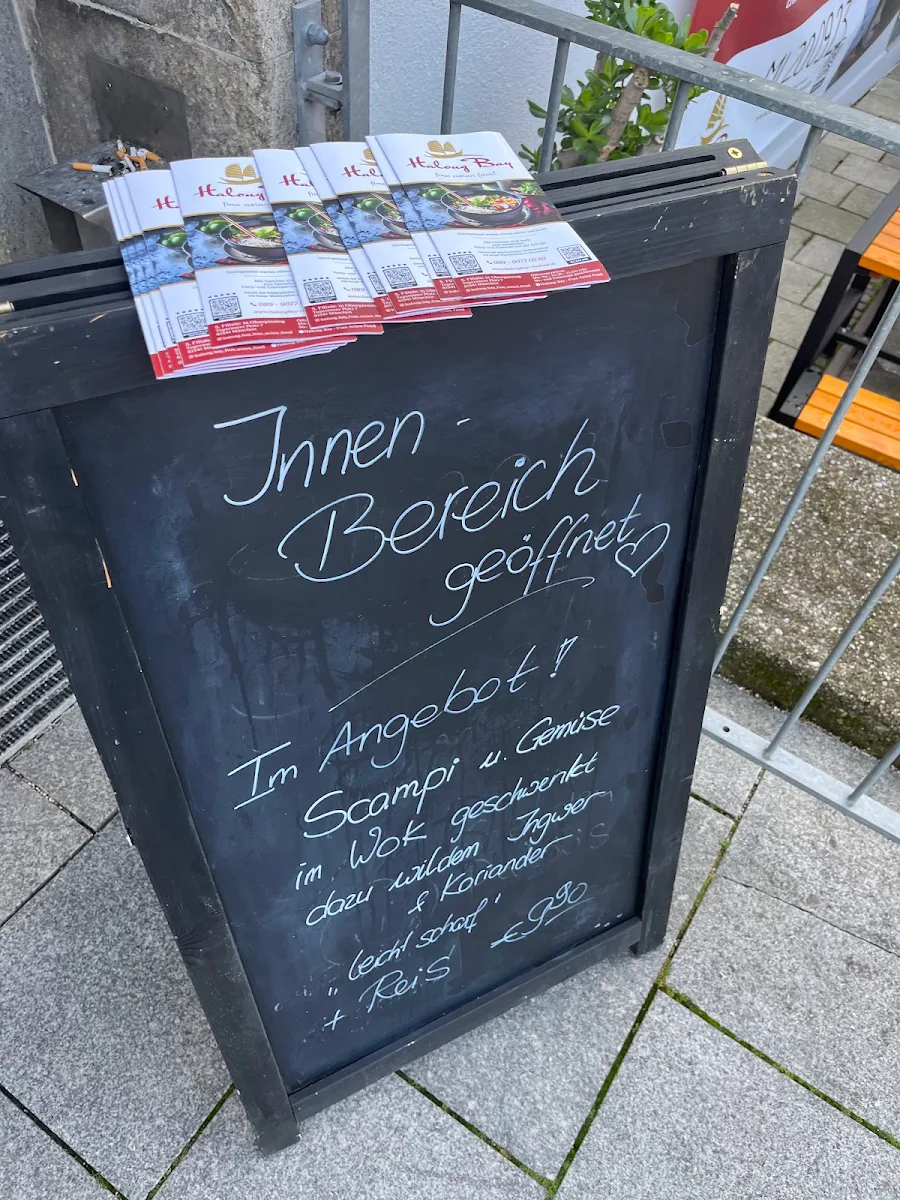 Halong Bay
fine asian food
089 - 6977 05 97
MI 20.09.23
Innen -
Bereich
geöffnet
Im Angebot!
Scampi u. Gemüse
im Wok geschwenkt
dazu wilden Ingwer
& Koriander
"leicht scharf"
+ Reis €9,90